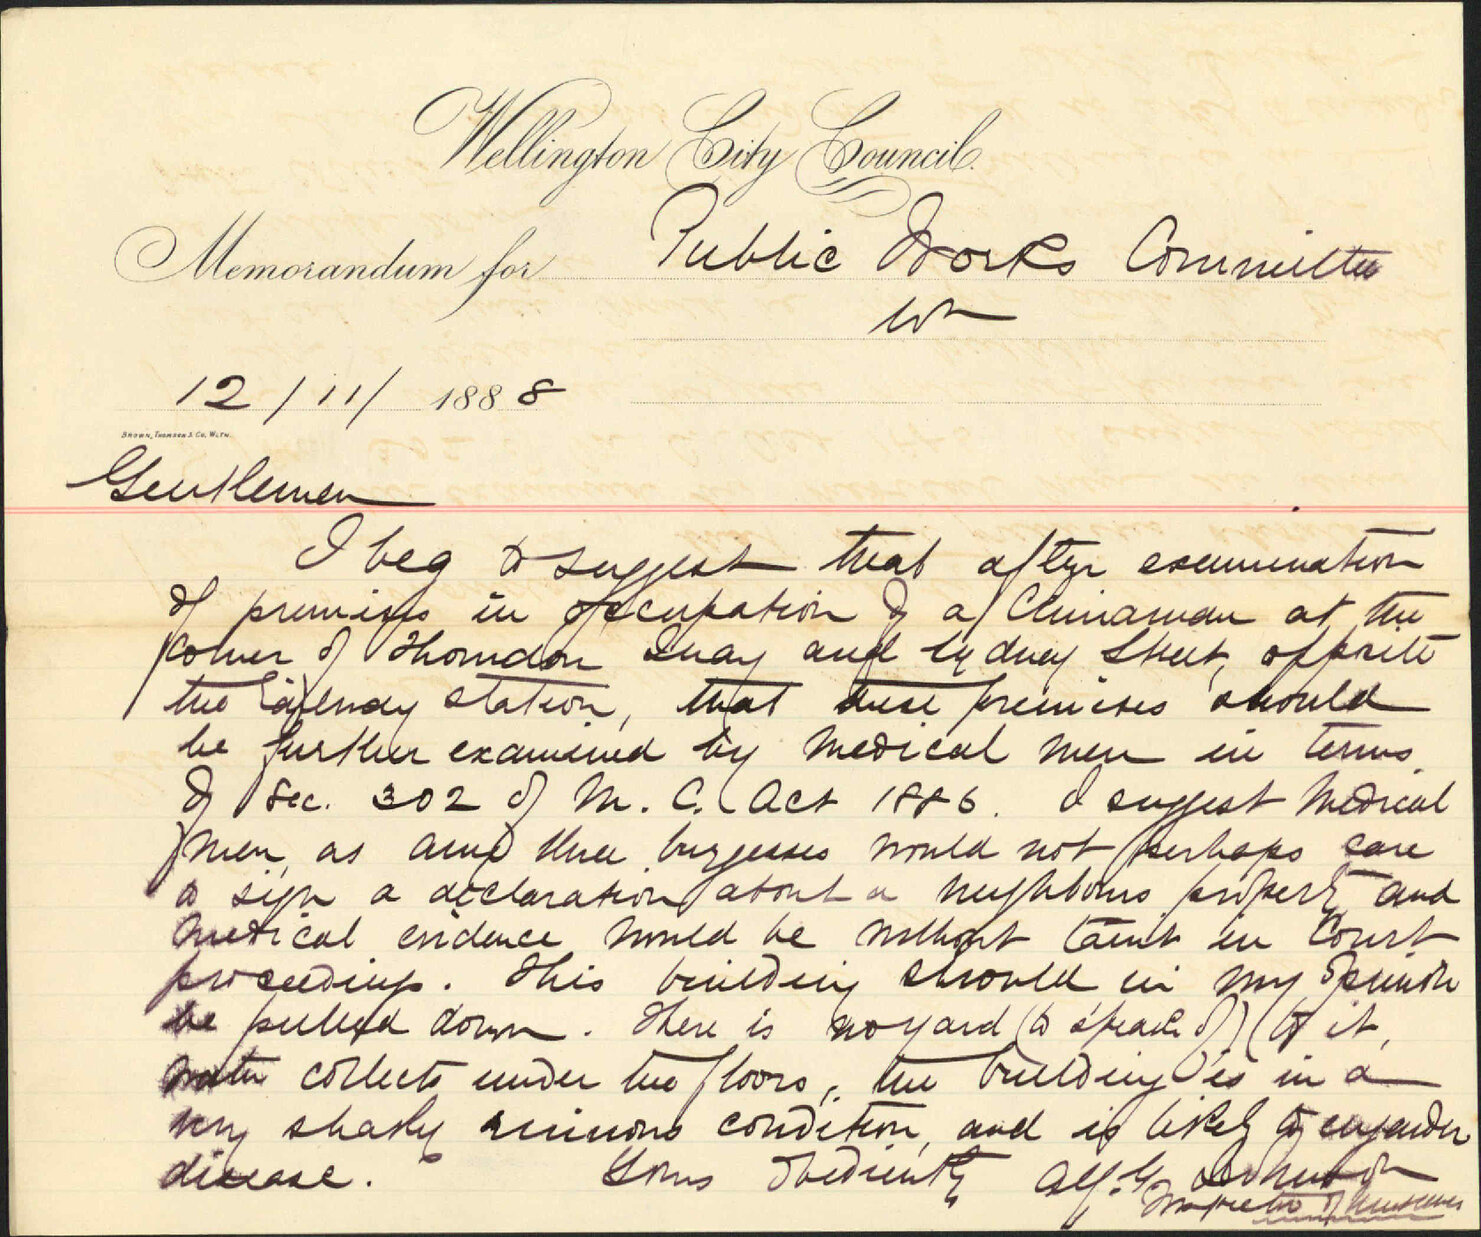 Wellington City Council.
Memorandum for Public Works Committee
Wn
12/11/ 1888
Brown, Thomson & Co, Wgtn.
Gentlemen
I beg to suggest that after examination
of premises in occupation of a Chinaman at the
corner of Thorndon Quay and Sydney Street, opposite
the Railway station, that these premises should
be further examined by medical men in terms
of Sec. 302 of M. C. Act 1886. I suggest medical
men, as any three burgesses would not perhaps care
to sign a declaration about a neighbours property and
medical evidence would be without taint in Court
proceedings. This building should in my opinion
be pulled down. There is no yard (to speak of) to it,
water collects under the floors, the building is in a
very shaky ruinous condition, and is likely to engender
disease. Yours obediently Alf. G. Johnston
Inspector of Nuisances